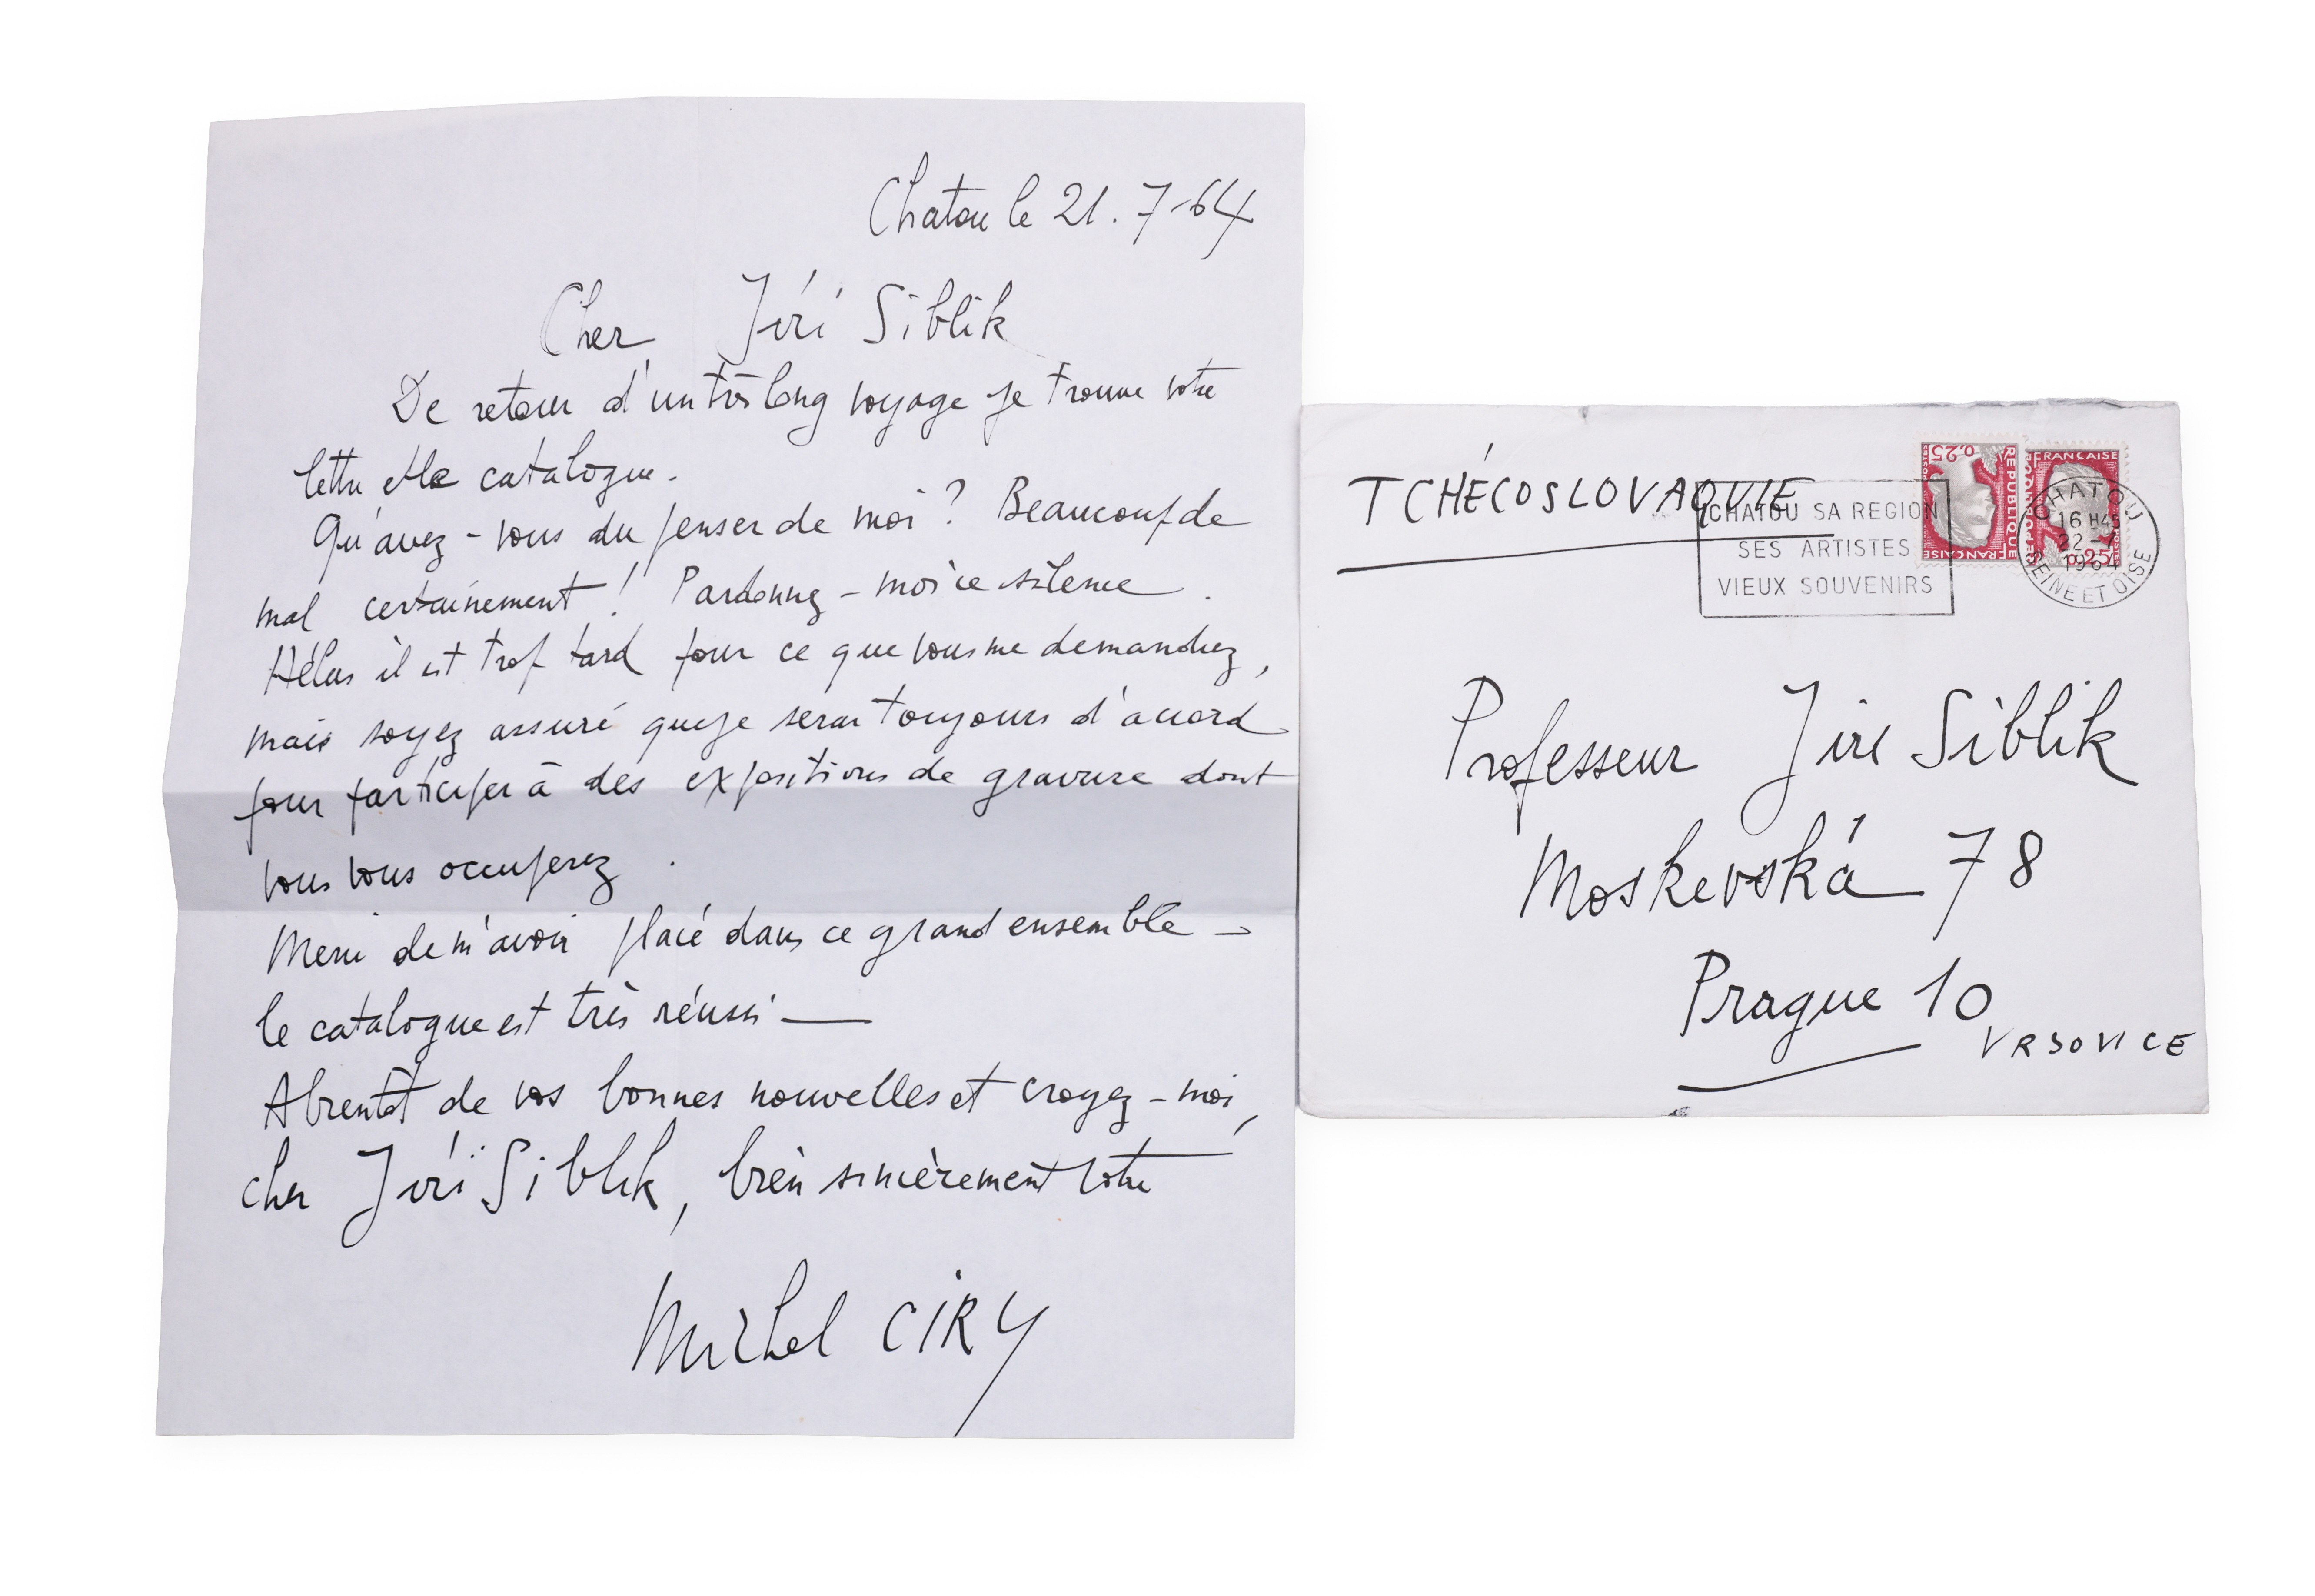 Chatou le 21.7-64
Cher Jiri Siblik
De retour d'un très long voyage je trouve votre
lettre et le catalogue.
Qu'avez-vous du penser de moi ? Beaucoup de
mal certainement ! Pardonnez-moi ce silence.
Hélas il est trop tard pour ce que vous me demandiez,
mais soyez assuré que je serai toujours d'accord
pour participer à des expositions de gravure dont
vous vous occuperez.
Merci de m'avoir placé dans ce grand ensemble —
le catalogue est très réussi —
A bientôt de vos bonnes nouvelles et croyez-moi,
cher Jiri Siblik, bien sincèrement votre
Michel CIRY
TCHÉCOSLOVAQUIE
CHATOU SA REGION
SES ARTISTES
VIEUX SOUVENIRS
0,25 POSTES REPUBLIQUE FRANÇAISE
FRANÇAISE 0,25 POSTES
CHATOU
16 H45
22-7
1964
SEINE ET OISE
Professeur Jiri Siblik
Moskevská 78
Prague 10
VRSOVICE